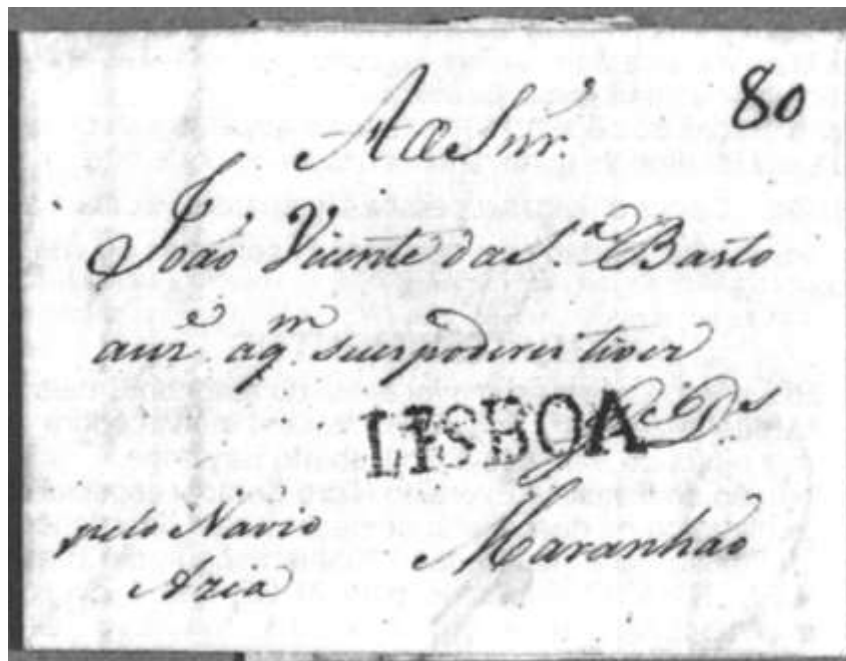 80
Ao Snr.
João Vicente da S.ª Basto
auz.e aq.m seus poderes tiver
LISBOA
G.e D.s
pelo Navio Maranhão
Azia